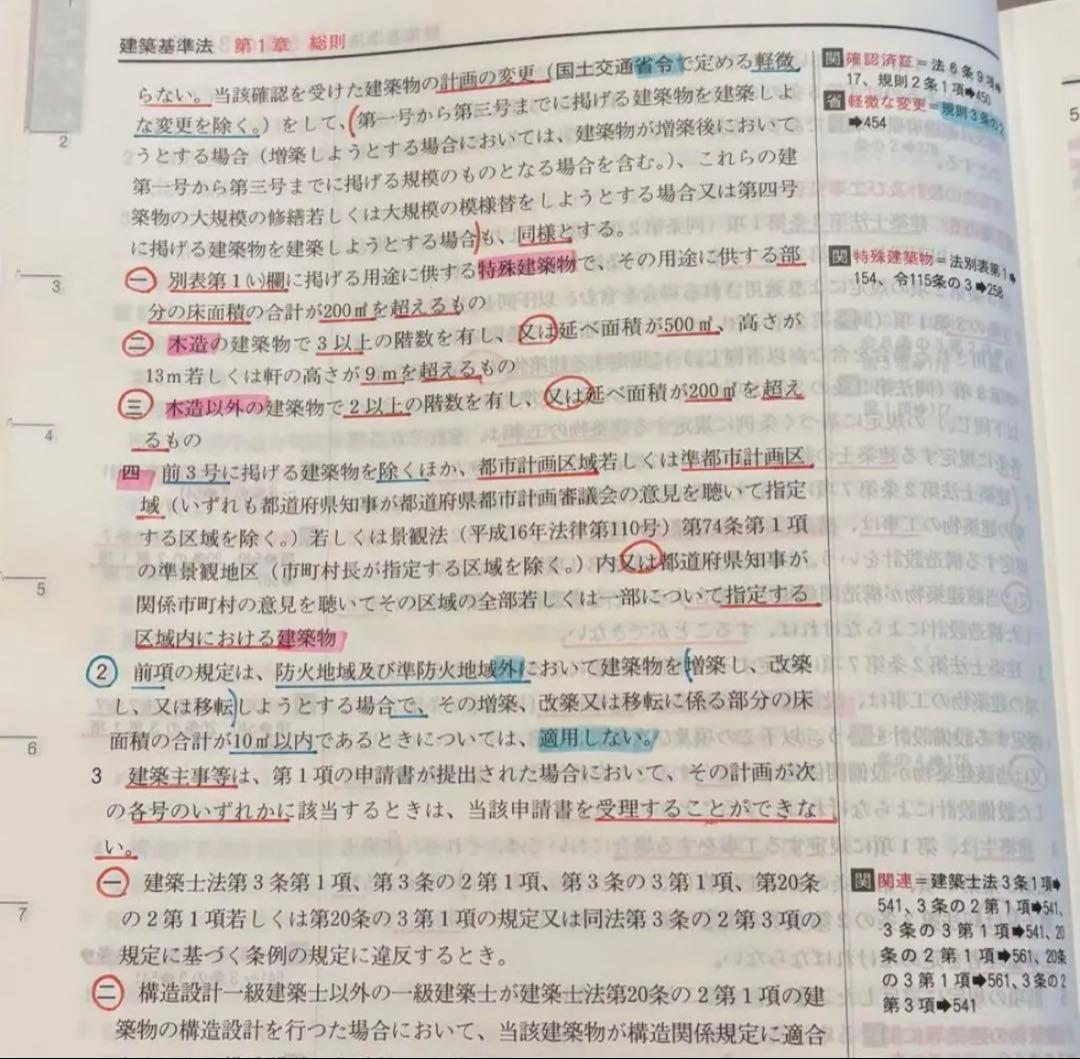 建築基準法 第1章 総則
らない。当該確認を受けた建築物の計画の変更（国土交通省令で定める軽微
な変更を除く。）をして、（第一号から第三号までに掲げる建築物を建築しよ
うとする場合（増築しようとする場合においては、建築物が増築後において
第一号から第三号までに掲げる規模のものとなる場合を含む。）、これらの建
築物の大規模の修繕若しくは大規模の模様替をしようとする場合又は第四号
に掲げる建築物を建築しようとする場合）も、同様とする。
一 別表第1(い)欄に掲げる用途に供する特殊建築物で、その用途に供する部
分の床面積の合計が200㎡を超えるもの
二 木造の建築物で3以上の階数を有し、又は延べ面積が500㎡、高さが
13m若しくは軒の高さが9mを超えるもの
三 木造以外の建築物で2以上の階数を有し、又は延べ面積が200㎡を超え
るもの
四 前3号に掲げる建築物を除くほか、都市計画区域若しくは準都市計画区
域（いずれも都道府県知事が都道府県都市計画審議会の意見を聴いて指定
する区域を除く。）若しくは景観法（平成16年法律第110号）第74条第1項
の準景観地区（市町村長が指定する区域を除く。）内又は都道府県知事が
関係市町村の意見を聴いてその区域の全部若しくは一部について指定する
区域内における建築物
2 前項の規定は、防火地域及び準防火地域外において建築物を（増築し、改築
し、又は移転）しようとする場合で、その増築、改築又は移転に係る部分の床
面積の合計が10㎡以内であるときについては、適用しない。
3 建築主事等は、第1項の申請書が提出された場合において、その計画が次
の各号のいずれかに該当するときは、当該申請書を受理することができな
い。
一 建築士法第3条第1項、第3条の2第1項、第3条の3第1項、第20条
の2第1項若しくは第20条の3第1項の規定又は同法第3条の2第3項の
規定に基づく条例の規定に違反するとき。
二 構造設計一級建築士以外の一級建築士が建築士法第20条の2第1項の建
築物の構造設計を行つた場合において、当該建築物が構造関係規定に適合
関 確認済証＝法6条9項➡
17、規則2条1項➡450
省 軽微な変更＝規則3条の2
➡454
関 特殊建築物＝法別表第1➡
154、令115条の3➡258
関 関連＝建築士法3条1項➡
541、3条の2第1項➡541、
3条の3第1項➡541、20
条の2第1項➡561、20条
の3第1項➡561、3条の2
第3項➡541
2
3
4
5
6
7
5